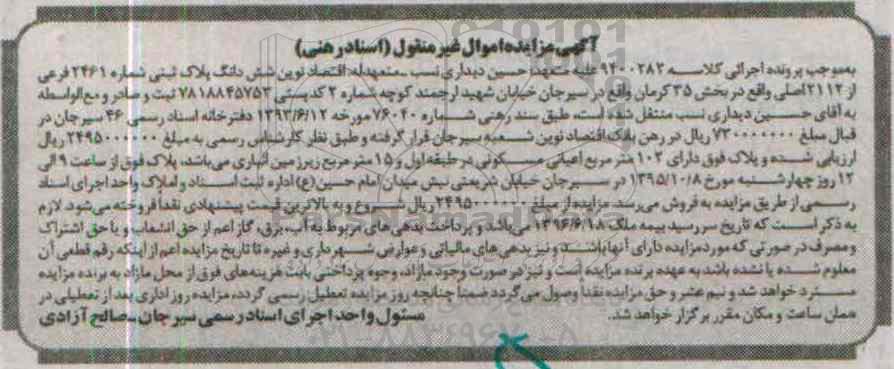 آگهی مزایده اموال غیر منقول (اسناد رهنی)
بموجب پرونده اجرائی کلاسه ۹۴۰۰۲۸۳ علیه متعهد: حسین دیداری نسب - متعهدله: اقتصاد نوین شش دانگ پلاک ثبتی شماره ۲۴۶۱ فرعی
از ۲۱۱۲ اصلی واقع در بخش ۳۵ کرمان واقع در سیرجان خیابان شهید ارجمند کوچه شماره ۲ کدپستی ۷۸۱۸۸۴۵۷۵۳ ثبت و صادر و مع الواسطه
به آقای حسین دیداری نسب منتقل شده است، طبق سند رهنی شماره ۷۶۰۴۰ مورخه ۱۳۹۳/۶/۱۲ دفترخانه اسناد رسمی ۴۶ سیرجان در
قبال مبلغ ۷۳۰۰۰۰۰۰۰ ریال در رهن بانک اقتصاد نوین شعبه سیرجان قرار گرفته و طبق نظر کارشناس رسمی به مبلغ ۲۴۹۵۰۰۰۰۰۰ ریال
ارزیابی شده و پلاک فوق دارای ۱۰۲ متر مربع اعیانی مسکونی در طبقه اول و ۱۵ متر مربع زیرزمین انباری می‌باشد، پلاک فوق از ساعت ۹ الی
۱۲ روز چهارشنبه مورخ ۱۳۹۵/۱۰/۸ در سیرجان خیابان شریعتی نبش میدان امام حسین(ع) اداره ثبت اسناد و املاک واحد اجرای اسناد
رسمی از طریق مزایده به فروش می‌رسد. مزایده از مبلغ ۲۴۹۵۰۰۰۰۰۰ ریال شروع و به بالاترین قیمت پیشنهادی نقداً فروخته می‌شود. لازم
به ذکر است که تاریخ سررسید بیمه ملک ۱۳۹۶/۶/۱۸ می‌باشد و پرداخت بدهی های مربوط به آب، برق، گاز اعم از حق انشعاب و یا حق اشتراک
و مصرف در صورتی که مورد مزایده دارای آنها باشد و نیز بدهی های مالیاتی و عوارض شهرداری و غیره تا تاریخ مزایده اعم از اینکه رقم قطعی آن
معلوم شده یا نشده باشد به عهده برنده مزایده است و نیز در صورت وجود مازاد، وجوه پرداختی بابت هزینه‌های فوق از محل مازاد به برنده مزایده
مسترد خواهد شد و نیم عشر و حق مزایده نقداً وصول می‌گردد ضمناً چنانچه روز مزایده تعطیل رسمی گردد، مزایده روز اداری بعد از تعطیلی در
همان ساعت و مکان مقرر برگزار خواهد شد.
مسئول واحد اجرای اسناد رسمی سیرجان - صالح آزادی
ParsNamadData